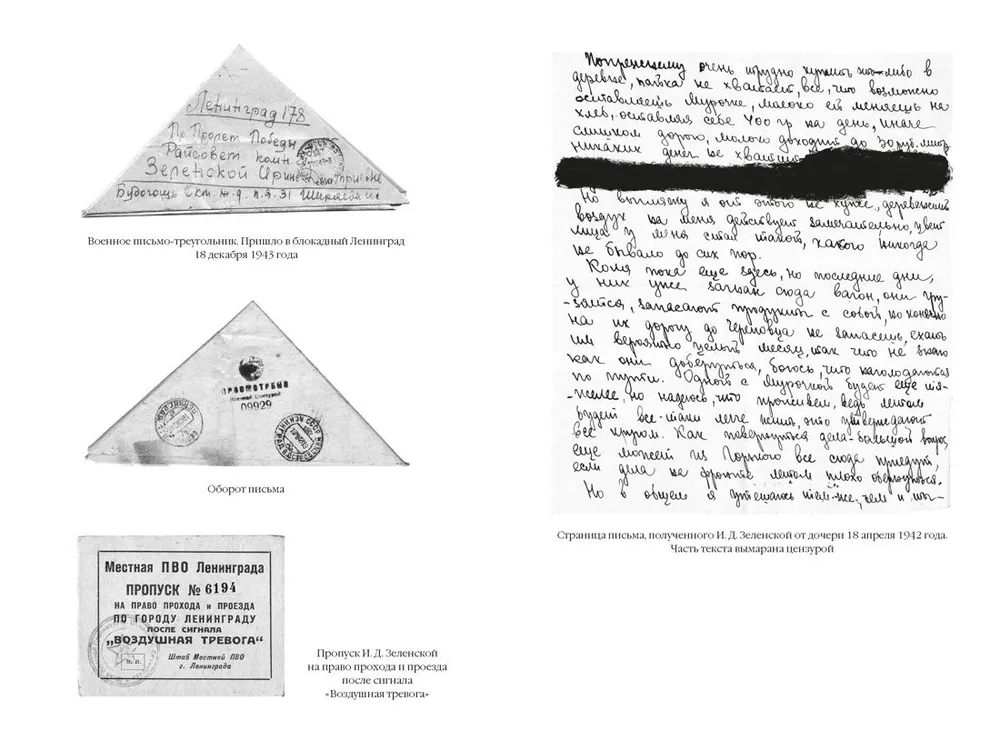 Ленинград 178
Пр Пролет Победы
Райсовет комн. 9
Зеленской Ирине
Будогощь Окт. ж.д. п.я. 31
Военное письмо-треугольник. Пришло в блокадный Ленинград
18 декабря 1943 года
ПРОСМОТРЕНО
Военной Цензурой
09929
Оборот письма
Местная ПВО Ленинграда
ПРОПУСК № 6194
НА ПРАВО ПРОХОДА и ПРОЕЗДА
ПО ГОРОДУ ЛЕНИНГРАДУ
ПОСЛЕ СИГНАЛА
„ВОЗДУШНАЯ ТРЕВОГА“
Штаб Местной ПВО
г. Ленинграда
Пропуск И. Д. Зеленской
на право прохода и проезда
после сигнала
«Воздушная тревога»
Попрежнему очень трудно купить что-либо в
деревне, пайка не хватает, все, что возможно
оставляешь Мурочке, молоко ей меняешь на
хлеб, оставляя себе 400 гр на день, иначе
слишком дорого, молоко доходит до 30 руб. литр
никаких денег не хватит
Но выгляжу я от этого не хуже, деревенский
воздух на меня действует замечательно, цвет
лица у меня стал такой, какого никогда
не бывало до сих пор.
Коля пока еще здесь, но последние дни,
у них уже загнан сюда вагон, они гру-
-зятся, запасают продукты с собой, но конечно
на их дорогу до Череповца не запасешь, ехать
им вероятно целый месяц, так что не знаю
как они доберутся, боюсь, что наголодаются
по пути. Одной с Мурочкой будет еще тя-
-желее, но надеюсь, что проживем, ведь летом
будет все-таки легче жить, это утверждают
все кругом. Как повернутся дела - большой вопрос,
еще может из Горного все сюда приедут,
если дела на фронте летом плохо обернутся.
Но в общем я утешаюсь тем-же, чем и
Страница письма, полученного И. Д. Зеленской от дочери 18 апреля 1942 года.
Часть текста вымарана цензурой